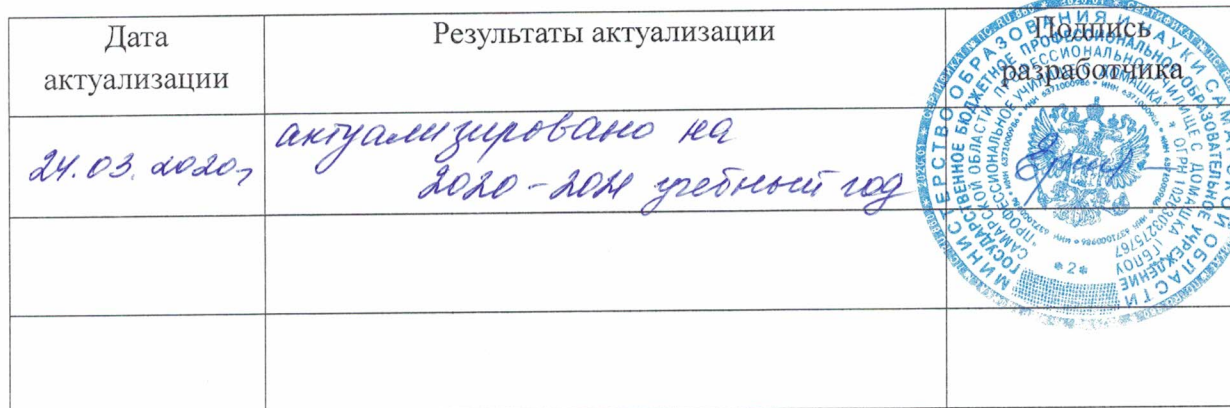 Дата
актуализации
Результаты актуализации
Подпись
разработчика
24.03.2020г
актуализировано на
2020-2021 учебный год
МИНИСТЕРСТВО ОБРАЗОВАНИЯ И НАУКИ САМАРСКОЙ ОБЛАСТИ
ГОСУДАРСТВЕННОЕ БЮДЖЕТНОЕ ПРОФЕССИОНАЛЬНОЕ ОБРАЗОВАТЕЛЬНОЕ УЧРЕЖДЕНИЕ
САМАРСКОЙ ОБЛАСТИ "ПРОФЕССИОНАЛЬНОЕ УЧИЛИЩЕ С. ДОМАШКА"
ОГРН 1026303275767
ИНН 6371000986
* 2 *